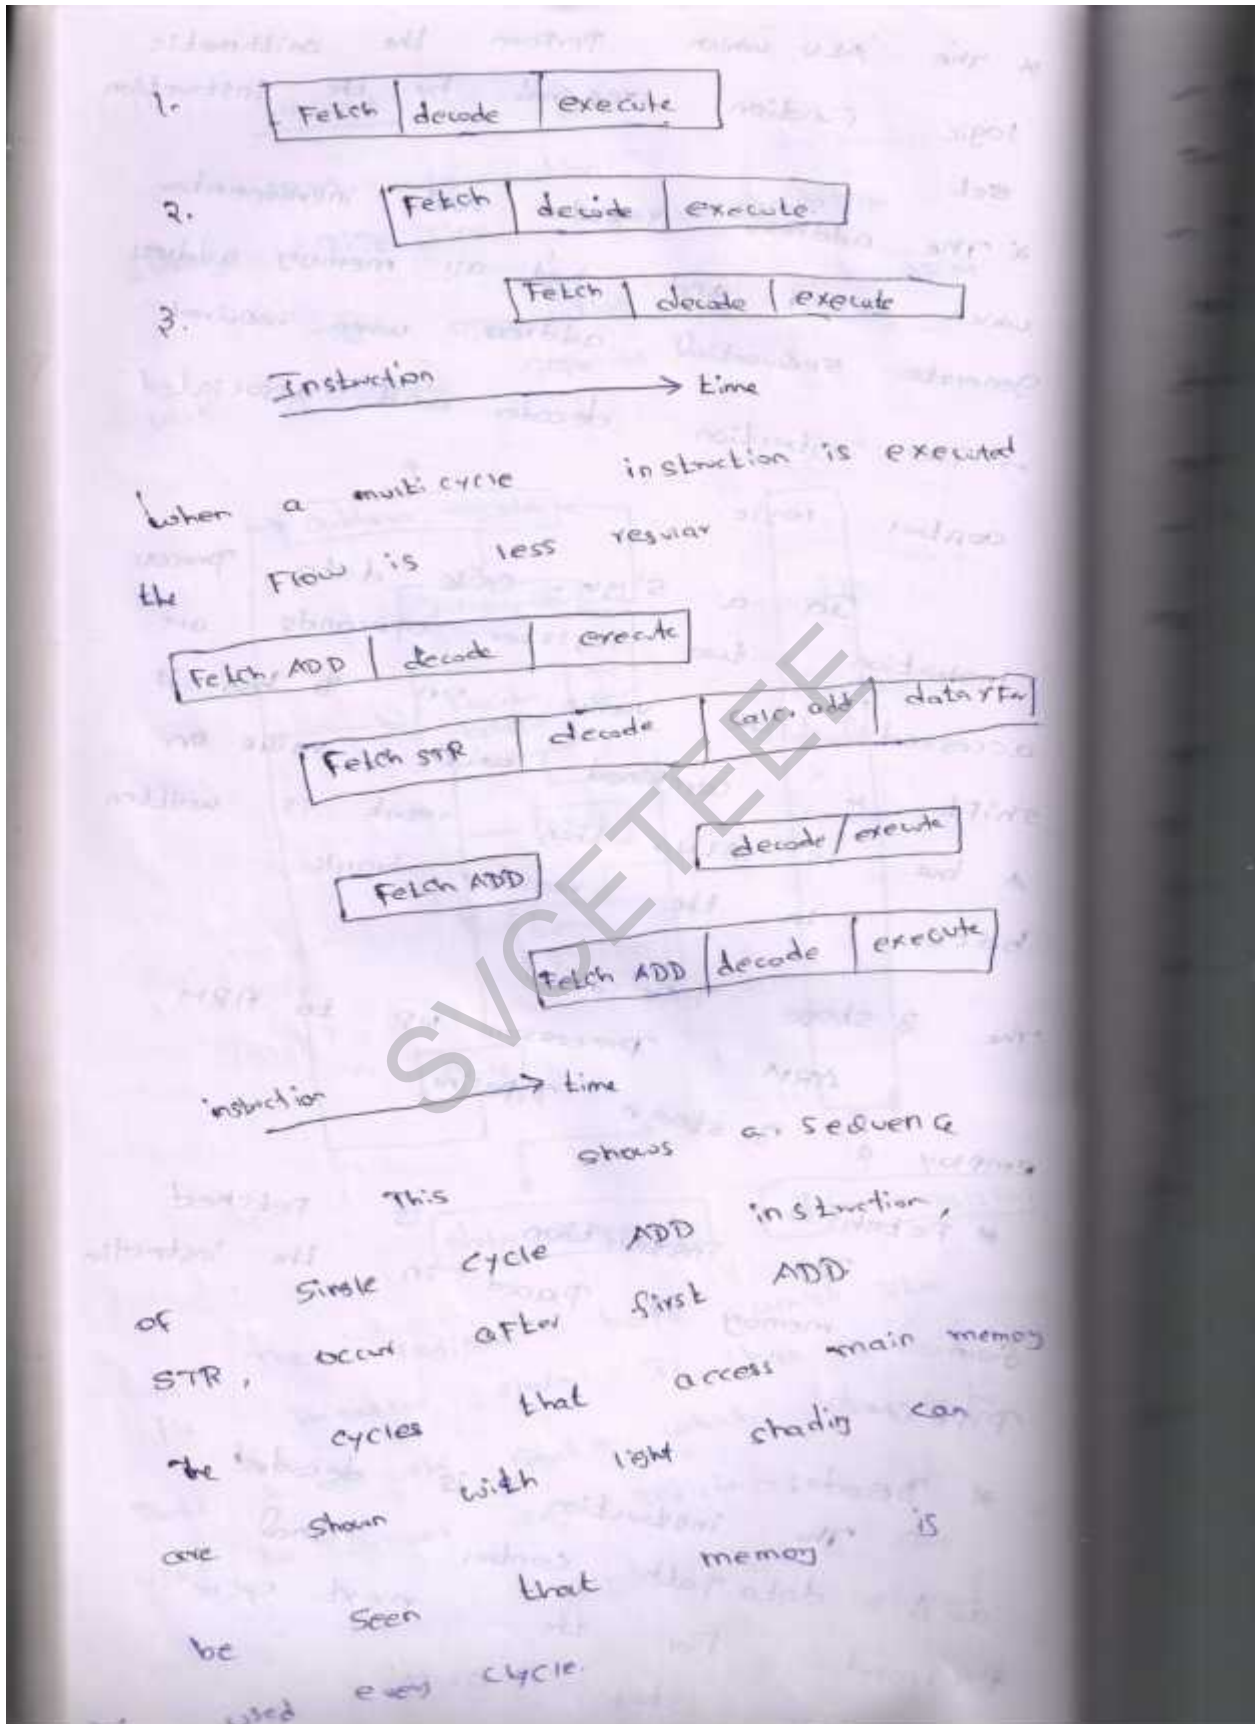 1. Fetch decode execute
2. Fetch decode execute
3. Fetch decode execute
Instruction time
when a multi cycle instruction is executed
the Flow is less regular
Fetch ADD decode execute
Fetch STR decode calc. add data xfer
Fetch ADD decode/execute
Fetch ADD decode execute
instruction time
This shows a sequence
of single cycle ADD instruction,
STR, occur after first ADD
The cycles that access main memoy
are shown with light shadig can
be seen that memoy is
used every cycle.
SVCETEEE